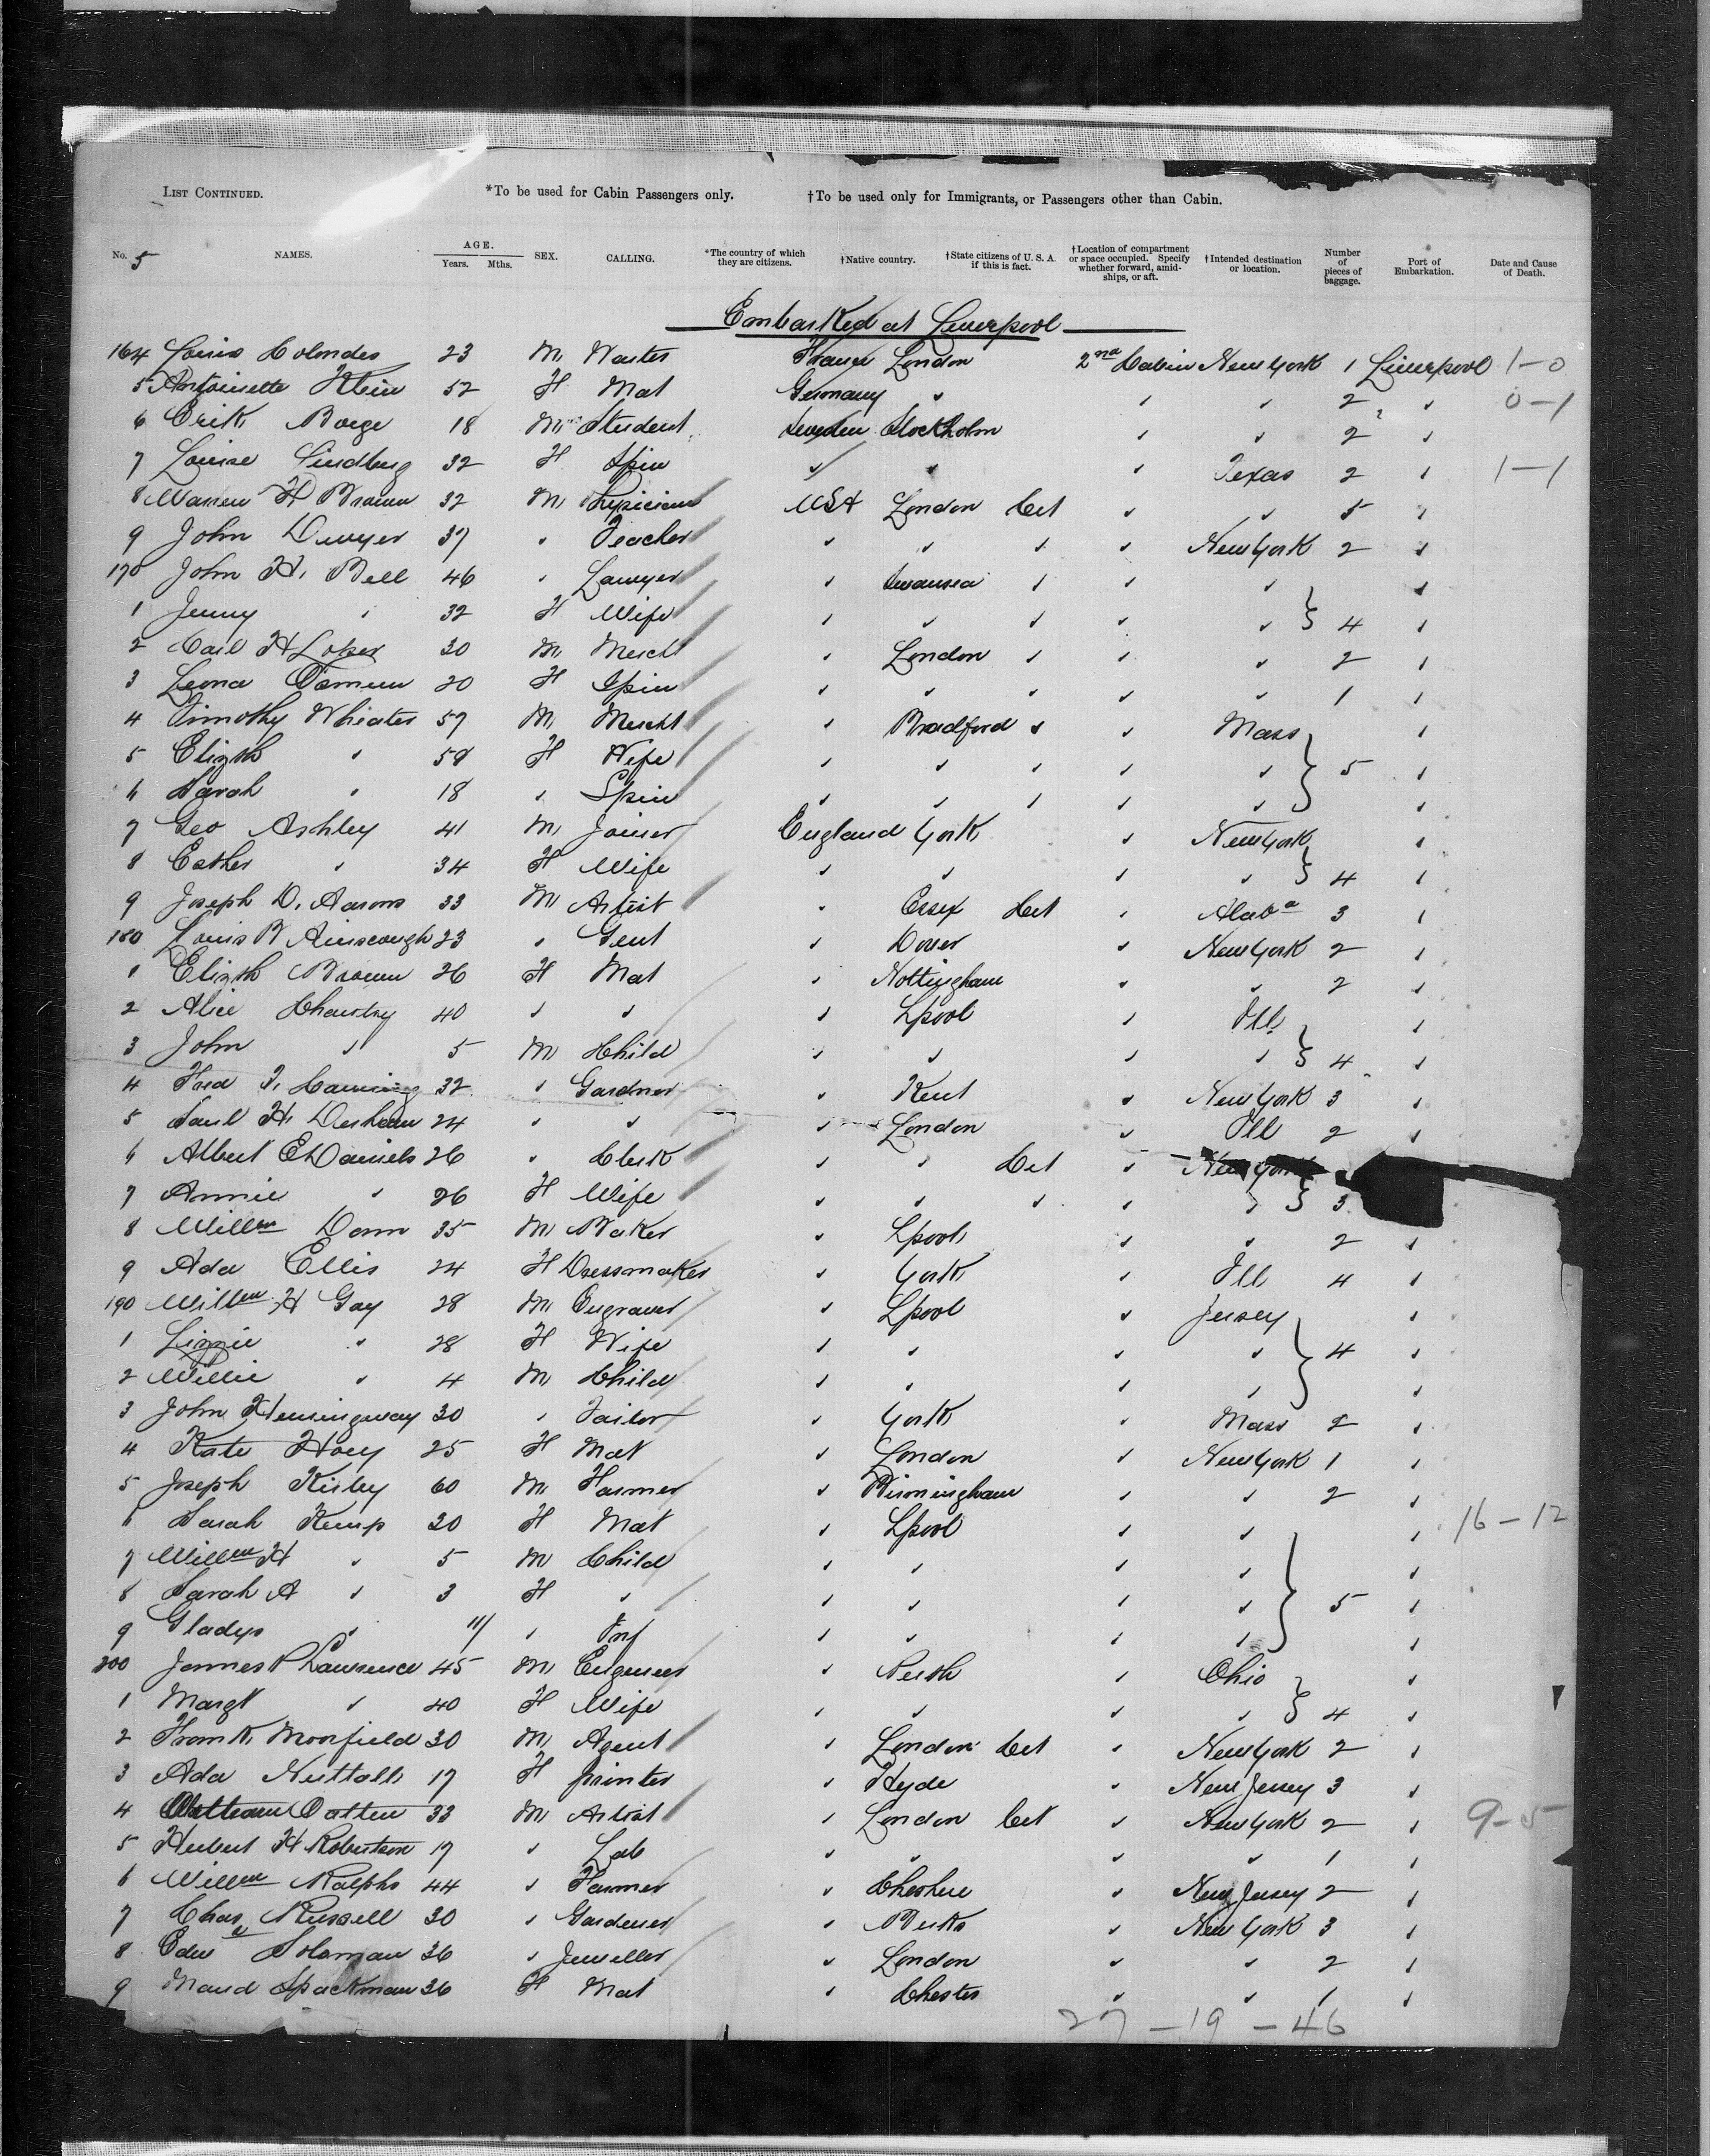 LIST CONTINUED. *To be used for Cabin Passengers only. †To be used only for Immigrants, or Passengers other than Cabin.
No. 5 NAMES. AGE. Years. Mths. SEX. CALLING. *The country of which they are citizens. †Native country. †State citizens of U. S. A. if this is fact. †Location of compartment or space occupied. Specify whether forward, amidships, or aft. †Intended destination or location. Number of pieces of baggage. Port of Embarkation. Date and Cause of Death.
Embarked at Liverpool
164 Louis 23 M Waiter France London 2nd Cabin New York 1 Liverpool 1-0
5 Antoinette Klein 52 F Mat Germany ✓ ✓ ✓ 2 ✓ 0-1
6 Erik Borge 18 M Student Sweden Stockholm ✓ ✓ 2 ✓
7 Louise Lindberg 32 F Spin ✓ ✓ ✓ Texas 2 ✓ 1-1
8 Warren H Brown 32 M Physician USA London Cit ✓ ✓ 5 ✓
9 John Dwyer 37 ✓ Teacher ✓ ✓ ✓ ✓ New York 2 ✓
170 John H. Bell 46 ✓ Lawyer ✓ Swansea ✓ ✓ ✓ ✓
1 Jenny ✓ 32 F Wife ✓ ✓ ✓ ✓ ✓ } 4 ✓
2 Carl H Loper 30 M Mercht ✓ London ✓ ✓ ✓ 2 ✓
3 Leona 20 F Spin ✓ ✓ ✓ ✓ ✓ 1 ✓
4 Timothy Wheater 57 M Mercht ✓ Bradford ✓ ✓ Mass ✓
5 Elizth ✓ 58 F Wife ✓ ✓ ✓ ✓ ✓ } 5 ✓
6 Sarah ✓ 18 ✓ Spin ✓ ✓ ✓ ✓ ✓ ✓
7 Geo Ashley 41 M Joiner England York ✓ New York ✓
8 Esther ✓ 34 F Wife ✓ ✓ ✓ ✓ } 4 ✓
9 Joseph D. Aarons 33 M Artist ✓ Essex Cit ✓ Alaba 3 ✓
180 Louis B Ainscough 23 ✓ Gent ✓ Dover ✓ New York 2 ✓
1 Elizth Brown 26 F Mat ✓ Nottingham ✓ ✓ 2 ✓
2 Alice Chantry 40 ✓ ✓ ✓ Lpool ✓ Ill ✓
3 John ✓ 5 M Child ✓ ✓ ✓ ✓ } 4 ✓
4 Fred T. 32 ✓ Gardner ✓ Kent ✓ New York 3 ✓
5 H. 24 ✓ ✓ ✓ London ✓ Ill 2 ✓
6 Albert E Daniels 26 ✓ Clerk ✓ ✓ Cit ✓ New York
7 Annie ✓ 26 F Wife ✓ ✓ ✓ ✓ ✓ } 3
8 Willm Dann 35 M Baker ✓ Lpool ✓ ✓ 2 ✓
9 Ada Ellis 24 F Dressmaker ✓ York ✓ Ill 4 ✓
190 Willm H Gay 28 M Engraver ✓ Lpool ✓ Jersey ✓
1 Lizzie ✓ 28 F Wife ✓ ✓ ✓ ✓ } 4 ✓
2 Willie ✓ 4 M Child ✓ ✓ ✓ ✓ ✓
3 John Hemingway 30 ✓ Tailor ✓ York ✓ Mass 2 ✓
4 Kate Hoey 25 F Mat ✓ London ✓ New York 1 ✓
5 Joseph Kirby 60 M Farmer ✓ Birmingham ✓ ✓ 2 ✓
6 Sarah Kemp 30 F Mat ✓ Lpool ✓ ✓ ✓ 16-12
7 Willm H ✓ 5 M Child ✓ ✓ ✓ ✓ ✓
8 Sarah A ✓ 3 F ✓ ✓ ✓ ✓ ✓ } 5 ✓
9 Gladys ✓ 11/ ✓ Inf ✓ ✓ ✓ ✓ ✓
200 James P Lawrence 45 M Engineer ✓ Perth ✓ Ohio ✓
1 Margt ✓ 40 F Wife ✓ ✓ ✓ ✓ } 4 ✓
2 Frank Monfield 30 M Agent ✓ London Cit ✓ New York 2 ✓
3 Ada Nuttall 17 F printer ✓ Hyde ✓ New Jersey 3 ✓
4 Patten 33 M Artist ✓ London Cit ✓ New York 2 ✓ 9-5
5 Herbert H Robertson 17 ✓ Lab ✓ ✓ ✓ ✓ 1 ✓
6 Willm Ralphs 44 ✓ Farmer ✓ Cheshire ✓ New Jersey 2 ✓
7 Chas Russell 30 ✓ Gardener ✓ Berks ✓ New York 3 ✓
8 Edwd Soloman 36 ✓ Jeweller ✓ London ✓ ✓ 2 ✓
9 Maud Spackman 36 F Mat ✓ Chester ✓ ✓ 1 ✓
27-19-46